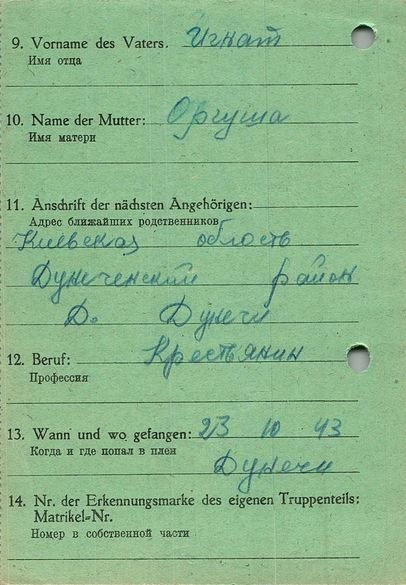 9. Vorname des Vaters. Игнат
Имя отца
10. Name der Mutter: Оргуша
Имя матери
11. Anschrift der nächsten Angehörigen:
Адрес ближайших родственников
Киевская область
район
Д.
12. Beruf: Крестьянин
Профессия
13. Wann und wo gefangen: 23 10 43
Когда и где попал в плен
14. Nr. der Erkennungsmarke des eigenen Truppenteils:
Matrikel-Nr.
Номер в собственной части